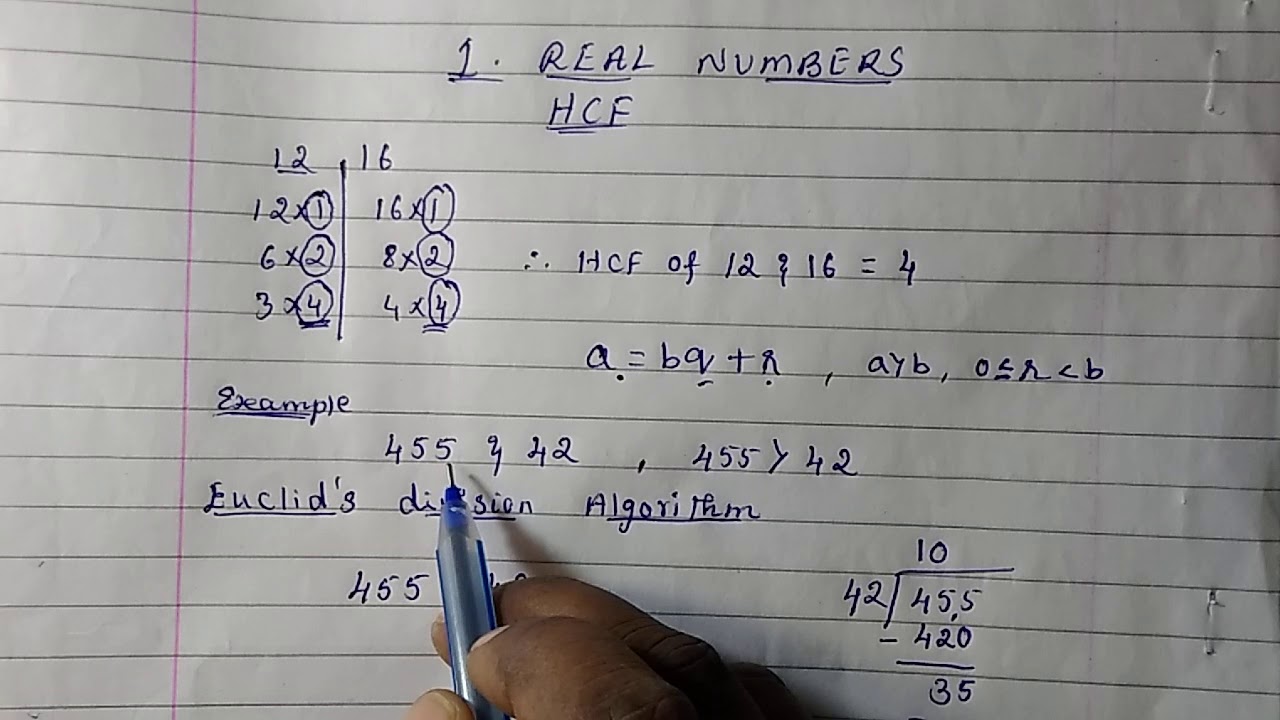 1. REAL NUMBERS
HCF
12 | 16
12×1 | 16×1
6×2 | 8×2
∴ HCF of 12 & 16 = 4
3×4 | 4×4
a = bq + r , a>b, 0≤r<b
Example
455 & 42 , 455 > 42
Euclid's division Algorithm
10
455
42 ) 455
- 420
35